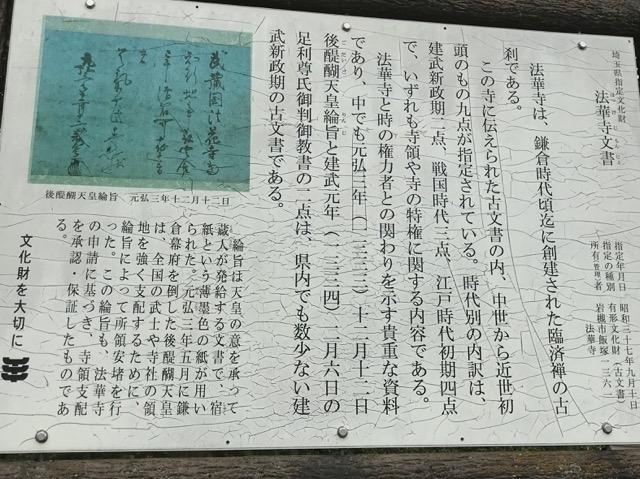 埼玉県指定文化財
法華寺文書
ほっけじもんじょ
指定年月日　昭和三十七年九月十日
指定の種別　有形文化財（古文書）
所有管理者　岩槻市飯塚一三六一
法華寺
法華寺は、鎌倉時代頃迄に創建された臨済禅の古
刹である。
この寺に伝えられた古文書の内、中世から近世初
頭のもの九点が指定されている。時代別の内訳は、
建武新政期二点、戦国時代三点、江戸時代初期四点
で、いずれも寺領や寺の特権に関する内容である。
法華寺と時の権力者との関わりを示す貴重な資料
であり、中でも元弘三年（一三三三）十二月十二日
後醍醐天皇綸旨と建武元年（一三三四）二月六日の
足利尊氏御判御教書の二点は、県内でも数少ない建
武新政期の古文書である。
後醍醐天皇綸旨　元弘三年十二月十二日
綸旨は天皇の意を承って
蔵人が発給する文書で、宿
紙という薄墨色の紙が用い
られた。元弘三年五月に鎌
倉幕府を倒した後醍醐天皇
は、全国の武士や寺社の領
地を強く支配するために、
綸旨によって所領安堵を行
った。この綸旨も、法華寺
の申請に基づき、寺領支配
を承認・保証したものであ
る。
文化財を大切に